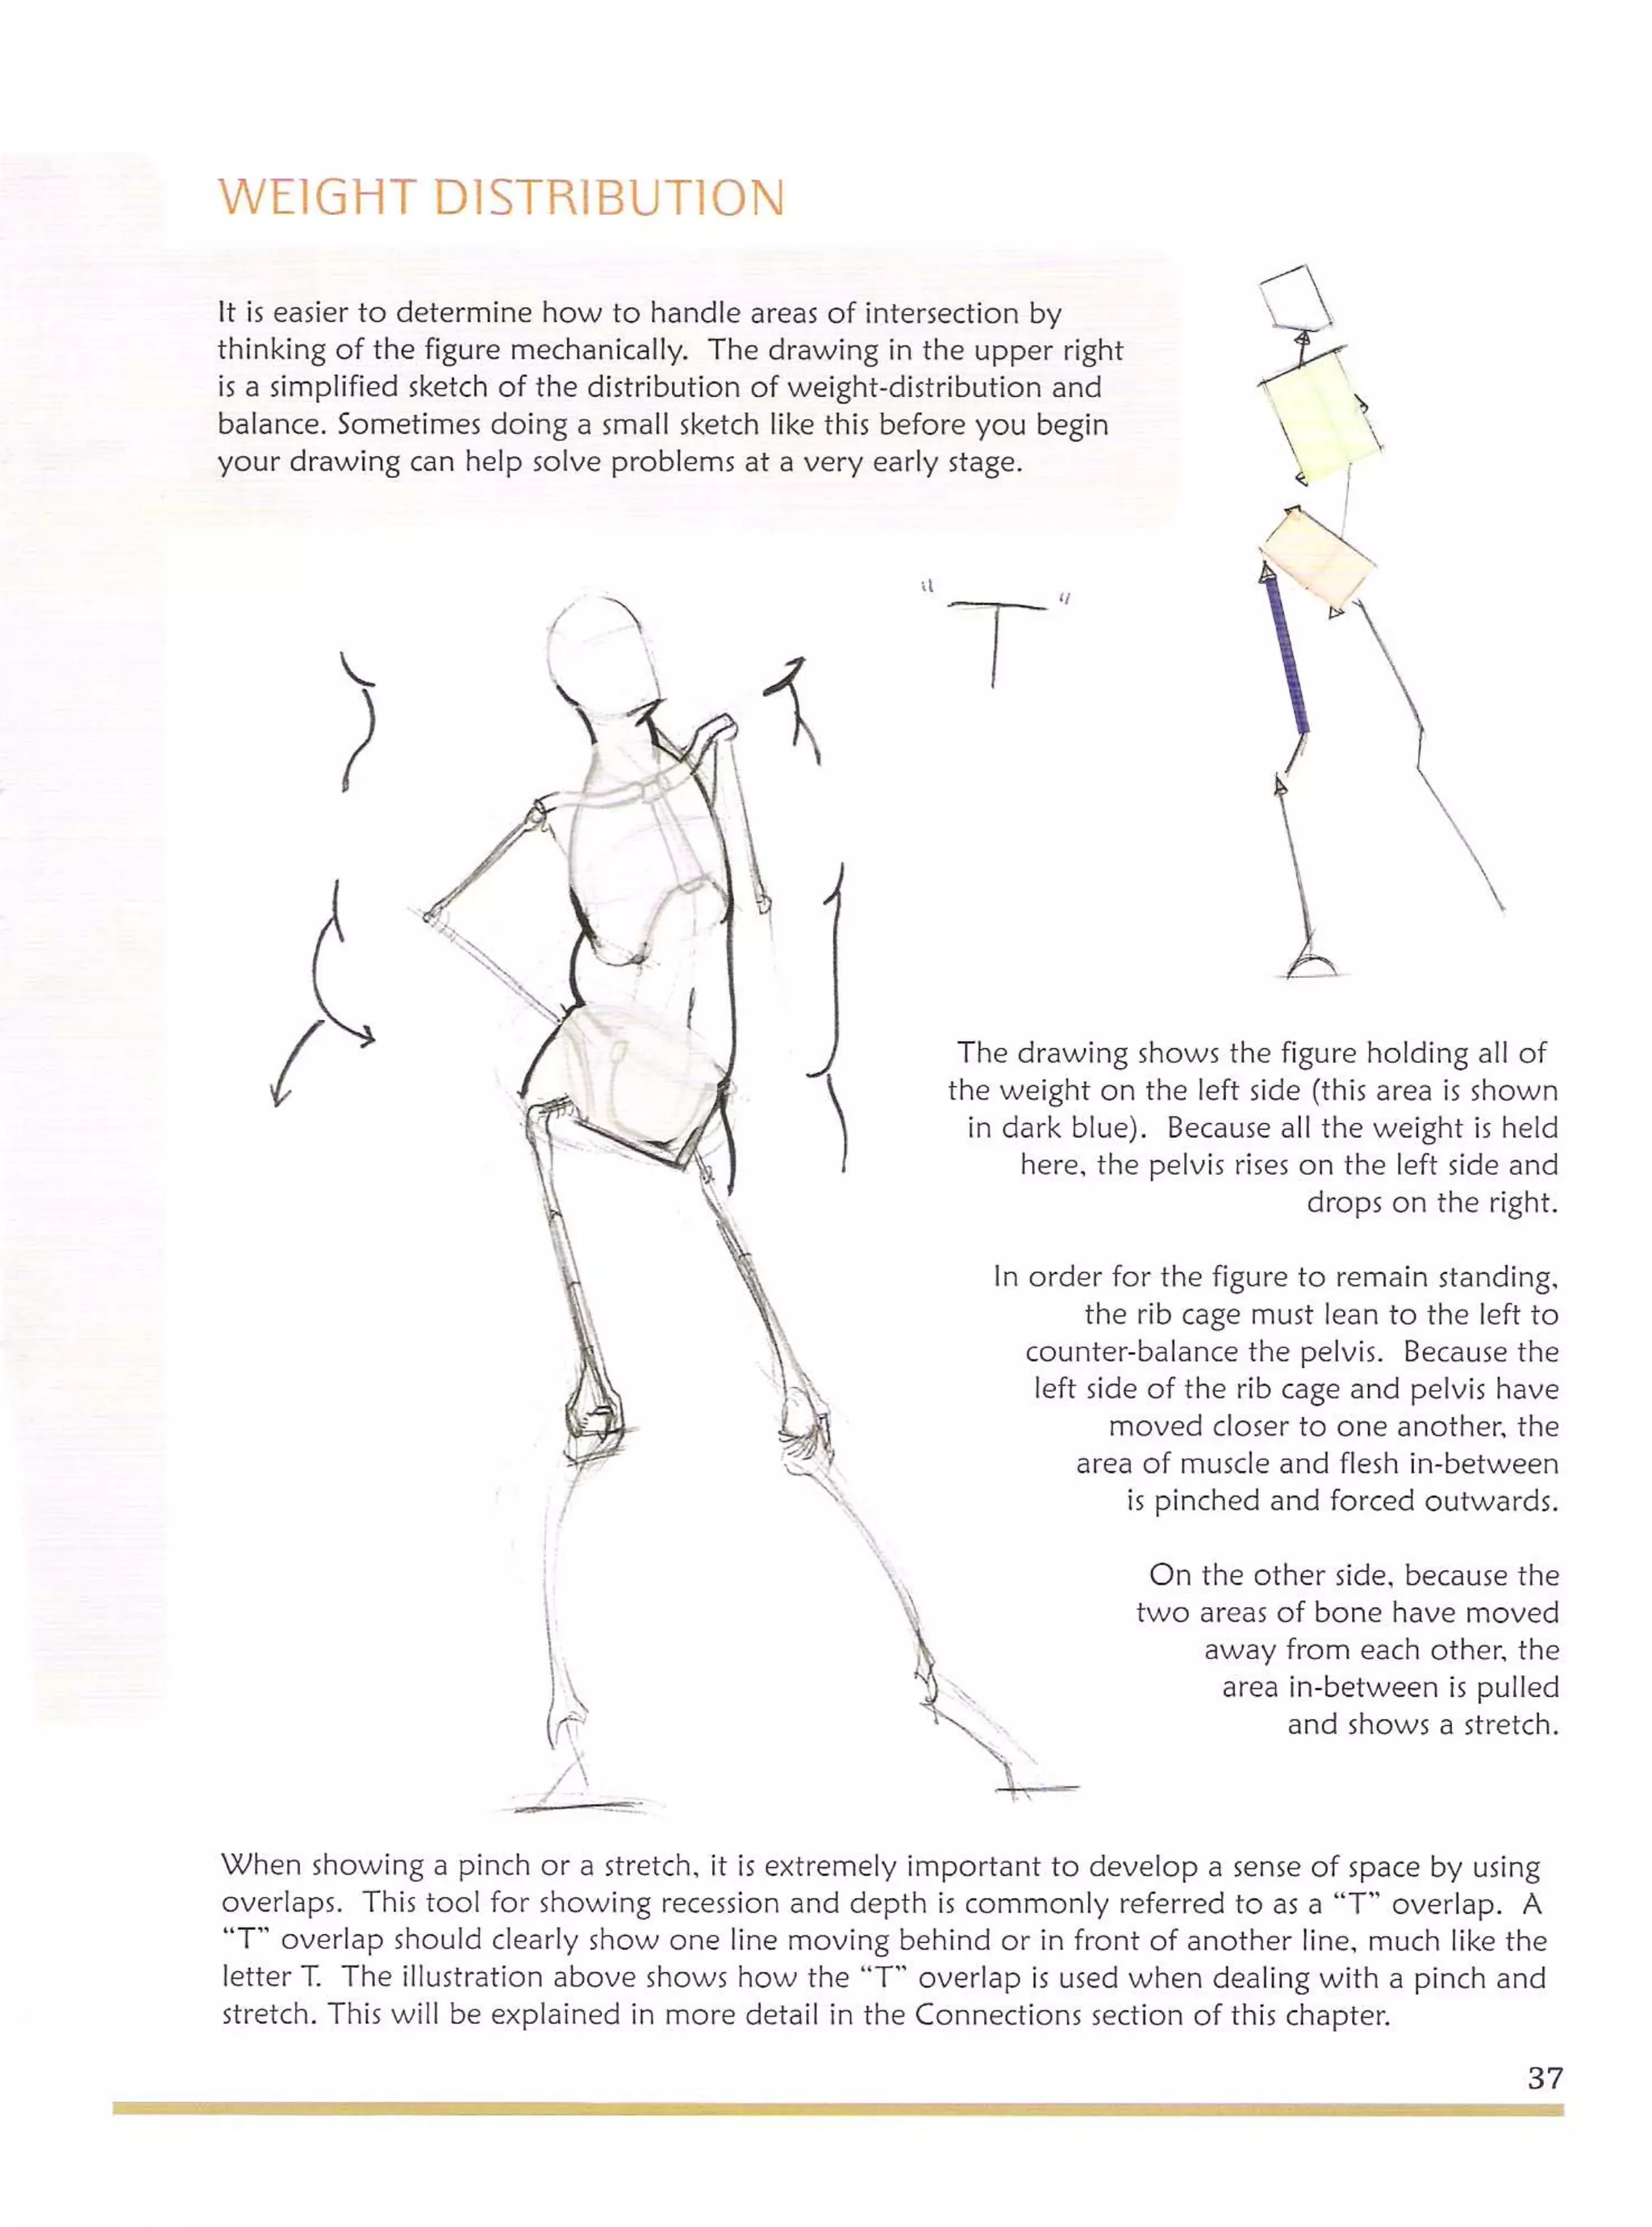 WEIGHT DISTRIBUTION
It is easier to determine how to handle areas of intersection by
thinking of the figure mechanically. The drawing in the upper right
is a simplified sketch of the distribution of weight-distribution and
balance. Sometimes doing a small sketch like this before you begin
your drawing can help solve problems at a very early stage.
"T"
The drawing shows the figure holding all of
the weight on the left side (this area is shown
in dark blue). Because all the weight is held
here, the pelvis rises on the left side and
drops on the right.
In order for the figure to remain standing,
the rib cage must lean to the left to
counter-balance the pelvis. Because the
left side of the rib cage and pelvis have
moved closer to one another, the
area of muscle and flesh in-between
is pinched and forced outwards.
On the other side, because the
two areas of bone have moved
away from each other, the
area in-between is pulled
and shows a stretch.
When showing a pinch or a stretch, it is extremely important to develop a sense of space by using
overlaps. This tool for showing recession and depth is commonly referred to as a “T” overlap. A
“T” overlap should clearly show one line moving behind or in front of another line, much like the
letter T. The illustration above shows how the “T” overlap is used when dealing with a pinch and
stretch. This will be explained in more detail in the Connections section of this chapter.
37